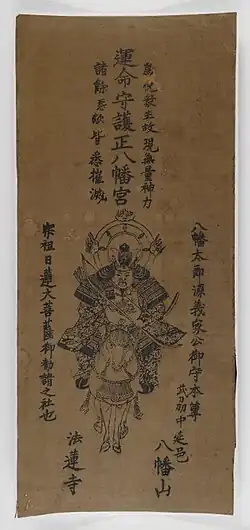 為悦衆生故現無量神力
運命守護正八幡宮
諸餘怨敵皆悉摧滅
八幡太郎源義家公御守本尊
武刕府中延邑
八幡山
宗祖日蓮大菩薩御勧請之社也
法蓮寺